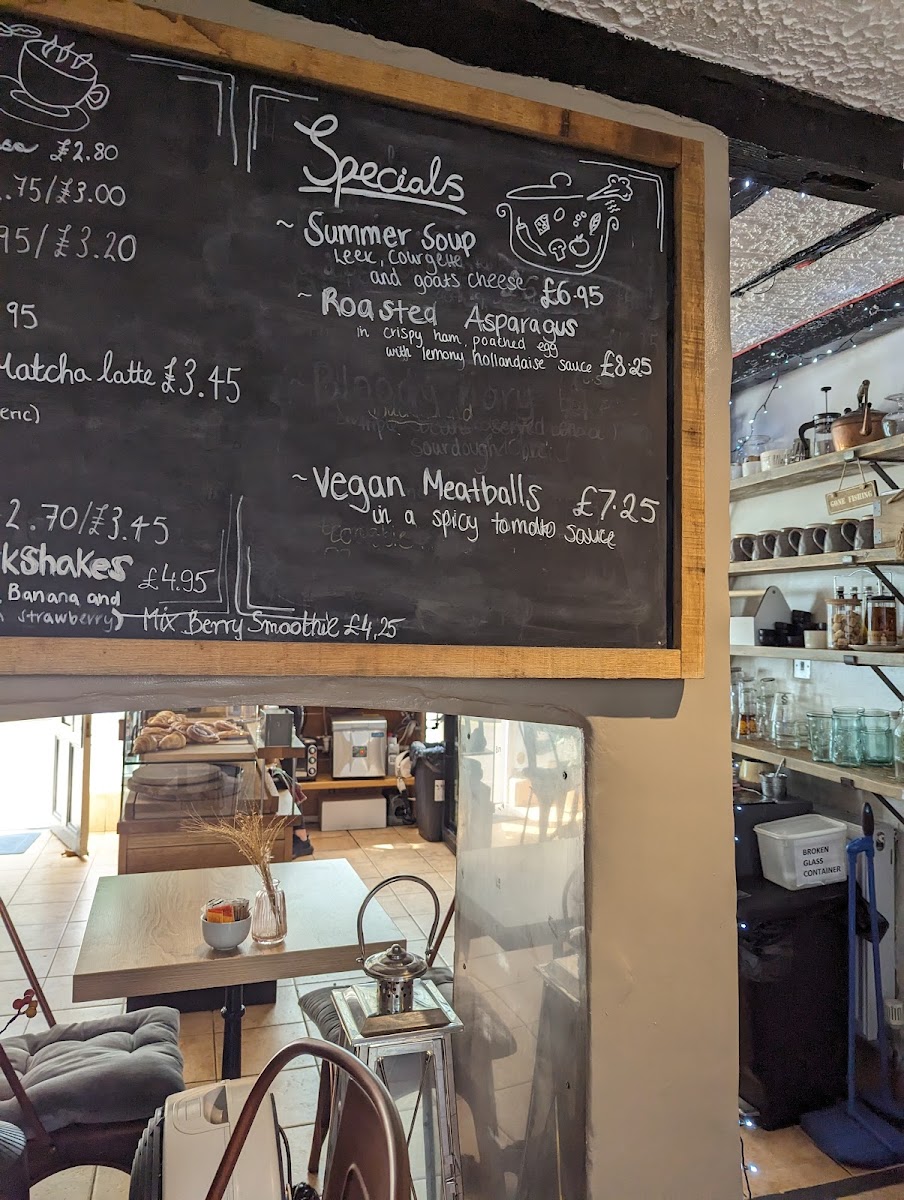 £2.80
.75/£3.00
95/£3.20
95
Matcha latte £3.45
eric)
2.70/£3.45
kshakes £4.95
Banana and
strawberry) Mix Berry Smoothie £4,25
Specials
~ Summer Soup
Leek, Courgette
and goats cheese £6.95
~ Roasted Asparagus
in crispy ham, poached egg
with lemony hollandaise sauce £8.25
~ Vegan Meatballs £7.25
in a spicy tomato sauce
GONE FISHING
BROKEN
GLASS
CONTAINER